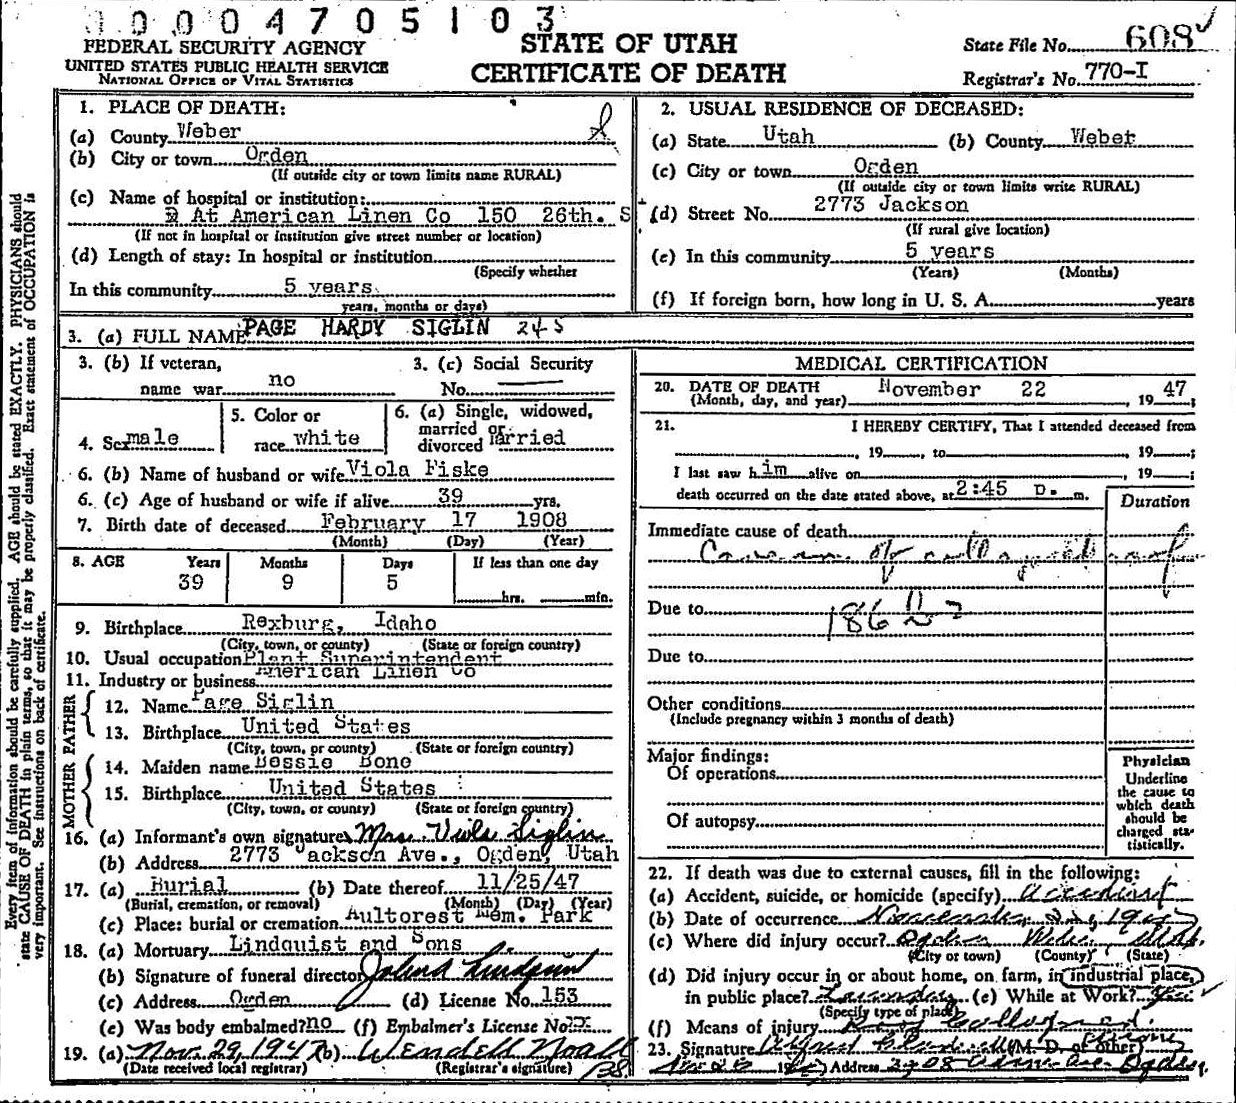 0000470510 3
FEDERAL SECURITY AGENCY
UNITED STATES PUBLIC HEALTH SERVICE
NATIONAL OFFICE OF VITAL STATISTICS
STATE OF UTAH
CERTIFICATE OF DEATH
State File No. 608
Registrar's No. 770-I
Every item of information should be carefully supplied. AGE should be stated EXACTLY. PHYSICIANS should
state CAUSE OF DEATH in plain terms, so that it may be properly classified. Exact statement of OCCUPATION is
very important. See instructions on back of certificate.
1. PLACE OF DEATH:
(a) County Weber
(b) City or town Ogden
(If outside city or town limits name RURAL)
(c) Name of hospital or institution:
At American Linen Co 150 26th. S
(If not in hospital or institution give street number or location)
(d) Length of stay: In hospital or institution
(Specify whether
In this community 5 years
years, months or days)
2. USUAL RESIDENCE OF DECEASED:
(a) State Utah (b) County Weber
(c) City or town Ogden
(If outside city or town limits write RURAL)
(d) Street No. 2773 Jackson
(If rural give location)
(e) In this community 5 years
(Years) (Months)
(f) If foreign born, how long in U. S. A. years
3. (a) FULL NAME PAGE HARDY SIGLIN 245
3. (b) If veteran,
name war no
3. (c) Social Security
No.
4. Sex male
5. Color or
race white
6. (a) Single, widowed,
married or
divorced Married
6. (b) Name of husband or wife Viola Fiske
6. (c) Age of husband or wife if alive 39 yrs.
7. Birth date of deceased February 17 1908
(Month) (Day) (Year)
8. AGE Years Months Days If less than one day
39 9 5 hrs. min.
9. Birthplace Rexburg, Idaho
(City, town, or county) (State or foreign country)
10. Usual occupation Plant Superintendent
11. Industry or business American Linen Co
FATHER
12. Name Page Siglin
13. Birthplace United States
(City, town, or county) (State or foreign country)
MOTHER
14. Maiden name Bessie Bone
15. Birthplace United States
(City, town, or county) (State or foreign country)
16. (a) Informant's own signature Mrs. Viola Siglin
(b) Address 2773 Jackson Ave., Ogden, Utah
17. (a) Burial (b) Date thereof 11/25/47
(Burial, cremation, or removal) (Month) (Day) (Year)
(c) Place: burial or cremation Aultorest Mem. Park
18. (a) Mortuary Lindquist and Sons
(b) Signature of funeral director
(c) Address Ogden (d) License No. 153
(e) Was body embalmed? no (f) Embalmer's License No.
19. (a) Nov. 29, 1947 (b) Wendell Noall
(Date received local registrar) (Registrar's signature)
MEDICAL CERTIFICATION
20. DATE OF DEATH November 22
(Month, day, and year) , 19 47;
21. I HEREBY CERTIFY, That I attended deceased from
, 19 , to , 19 ;
I last saw h im alive on , 19 ;
death occurred on the date stated above, at 2:45 p. m.
Duration
Immediate cause of death
of collapsed roof
Due to 186
Due to
Other conditions
(Include pregnancy within 3 months of death)
Major findings:
Of operations
Of autopsy
Physician
Underline
the cause to
which death
should be
charged sta-
tistically.
22. If death was due to external causes, fill in the following:
(a) Accident, suicide, or homicide (specify) Accident
(b) Date of occurrence November 22, 1947
(c) Where did injury occur? Ogden Weber Utah
(City or town) (County) (State)
(d) Did injury occur in or about home, on farm, in industrial place,
in public place? Laundry (e) While at Work? Yes
(Specify type of place)
(f) Means of injury Roof Collapsed.
23. Signature (M. D. or other)
Address Ogden